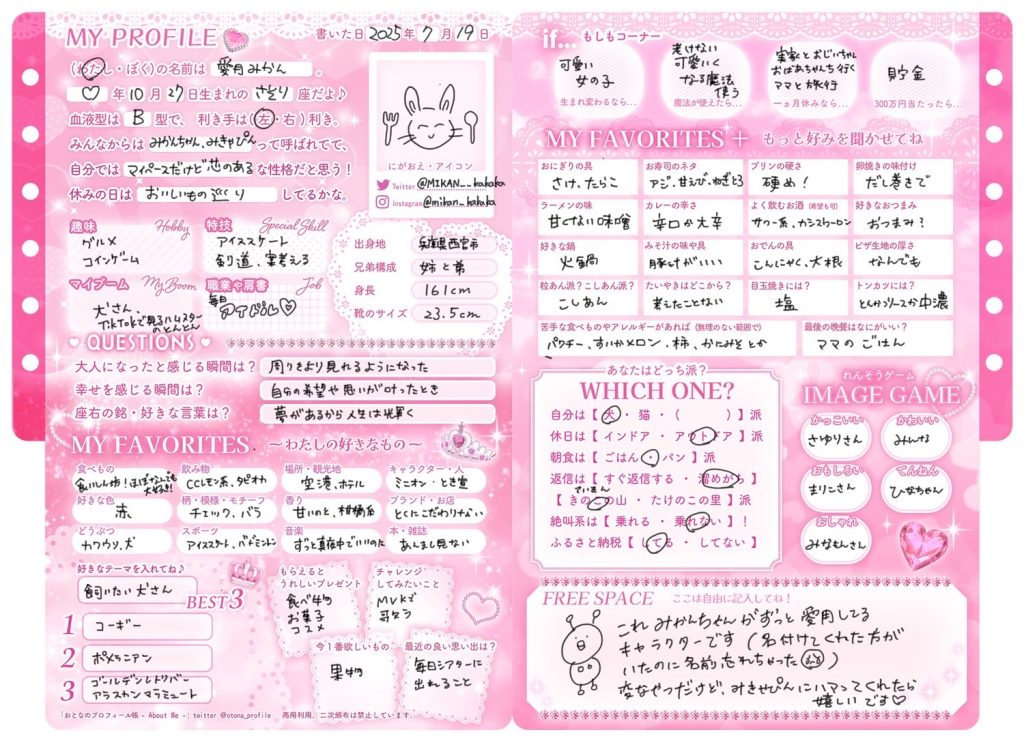 MY PROFILE
書いた日 2025年 7月19日
(わたし・ぼく)の名前は 愛月みかん 。
♡ 年10月27日生まれの さそり 座だよ♪
血液型は B 型で、利き手は(左・右)利き。
みんなからは みかんちゃん、みきゃぴん って呼ばれてて、
自分では マイペースだけど芯のある な性格だと思う!
休みの日は おいしいもの巡り してるかな。
にがおえ・アイコン
Twitter @MIKAN__kakaka
Instagram @mikan_kakaka
趣味 Hobby
グルメ
コインゲーム
特技 Special Skill
アイススケート
剣道、案考える
マイブーム My Boom
犬さん、
TikTokで見るハムスター
のとんとん
職業や肩書 Job
毎日
アイドル♡
出身地 兵庫県西宮市
兄弟構成 姉と弟
身長 161cm
靴のサイズ 23.5cm
QUESTIONS
大人になったと感じる瞬間は? 周りをより見れるようになった
幸せを感じる瞬間は? 自分の希望や思いが叶ったとき
座右の銘・好きな言葉は? 夢があるから人生は光輝く
MY FAVORITES. 〜わたしの好きなもの〜
食べもの
食いしん坊!ほぼなんでも
大好き!
飲み物
CCレモン系、タピオカ
場所・観光地
空港、ホテル
キャラクター・人
ミニオン・とき宣
好きな色
赤
柄・模様・モチーフ
チェック、バラ
香り
甘いのと、柑橘系
ブランド・お店
とくにこだわりない
どうぶつ
カワウソ、犬
スポーツ
アイススケート、バドミントン
音楽
ずっと真夜中でいいのに
本・雑誌
あんまし見ない
好きなテーマを入れてね♪
飼いたい犬さん
BEST3
1 コーギー
2 ポメラニアン
3 ゴールデンレトリバー
アラスカンマラミュート
もらえると
うれしいプレゼント
食べ物
お菓子
コスメ
チャレンジ
してみたいこと
MVKで
歌うう
今1番欲しいもの
果物
最近の良い思い出は?
毎日シアターに
出れること
「おとなのプロフィール帳 - About Me -」twitter @otona_profile 商用利用、二次頒布は禁止しています。
if... もしもコーナー
可愛い
女の子
生まれ変わるなら...
老けない
可愛いく
なる魔法
使う
魔法が使えたら...
実家とおじいちゃん
おばあちゃんち行く
ママと旅行
一ヵ月休みなら...
貯金
300万円当たったら...
MY FAVORITES + もっと好みを聞かせてね
おにぎりの具
さけ、たらこ
お寿司のネタ
アジ、甘えび、ねぎとろ
プリンの硬さ
硬め!
卵焼きの味付け
だし巻きで
ラーメンの味
甘くない味噌
カレーの辛さ
辛口か大辛
よく飲むお酒 (希望も可)
サワー系、カシスウーロン
好きなおつまみ
おつまみ?
好きな鍋
火鍋
みそ汁の味や具
豚汁がいい
おでんの具
こんにゃく、大根
ピザ生地の厚さ
なんでも
粒あん派?こしあん派?
こしあん
たいやきはどこから?
考えたことない
目玉焼きには?
塩
トンカツには?
とんかつソースか中濃
苦手な食べものやアレルギーがあれば (無理のない範囲で)
パクチー、すいかメロン、柿、かにみそとか
最後の晩餐はなにがいい?
ママのごはん
あなたはどっち派?
WHICH ONE?
自分は【 犬 ・ 猫 ・ ( ) 】派
休日は【 インドア ・ アウトドア 】派
朝食は【 ごはん ・ パン 】派
返信は【 すぐ返信する ・ 溜めがち 】派
さいきん
【 きのこの山 ・ たけのこの里 】派
絶叫系は【 乗れる ・ 乗れない 】!
ふるさと納税【 してる ・ してない 】
れんそうゲーム
IMAGE GAME
かっこいい
さゆりさん
かわいい
みんける
おもしろい
まりこさん
てんねん
ひなちゃん
おしゃれ
みなもんさん
FREE SPACE ここは自由に記入してね!
これみかんちゃんがずっと愛用してる
キャラクターです(名付けてくれた方が
いたのに名前忘れちゃった
変なやつだけど、みきゃぴんにハマってくれたら
嬉しいです♡